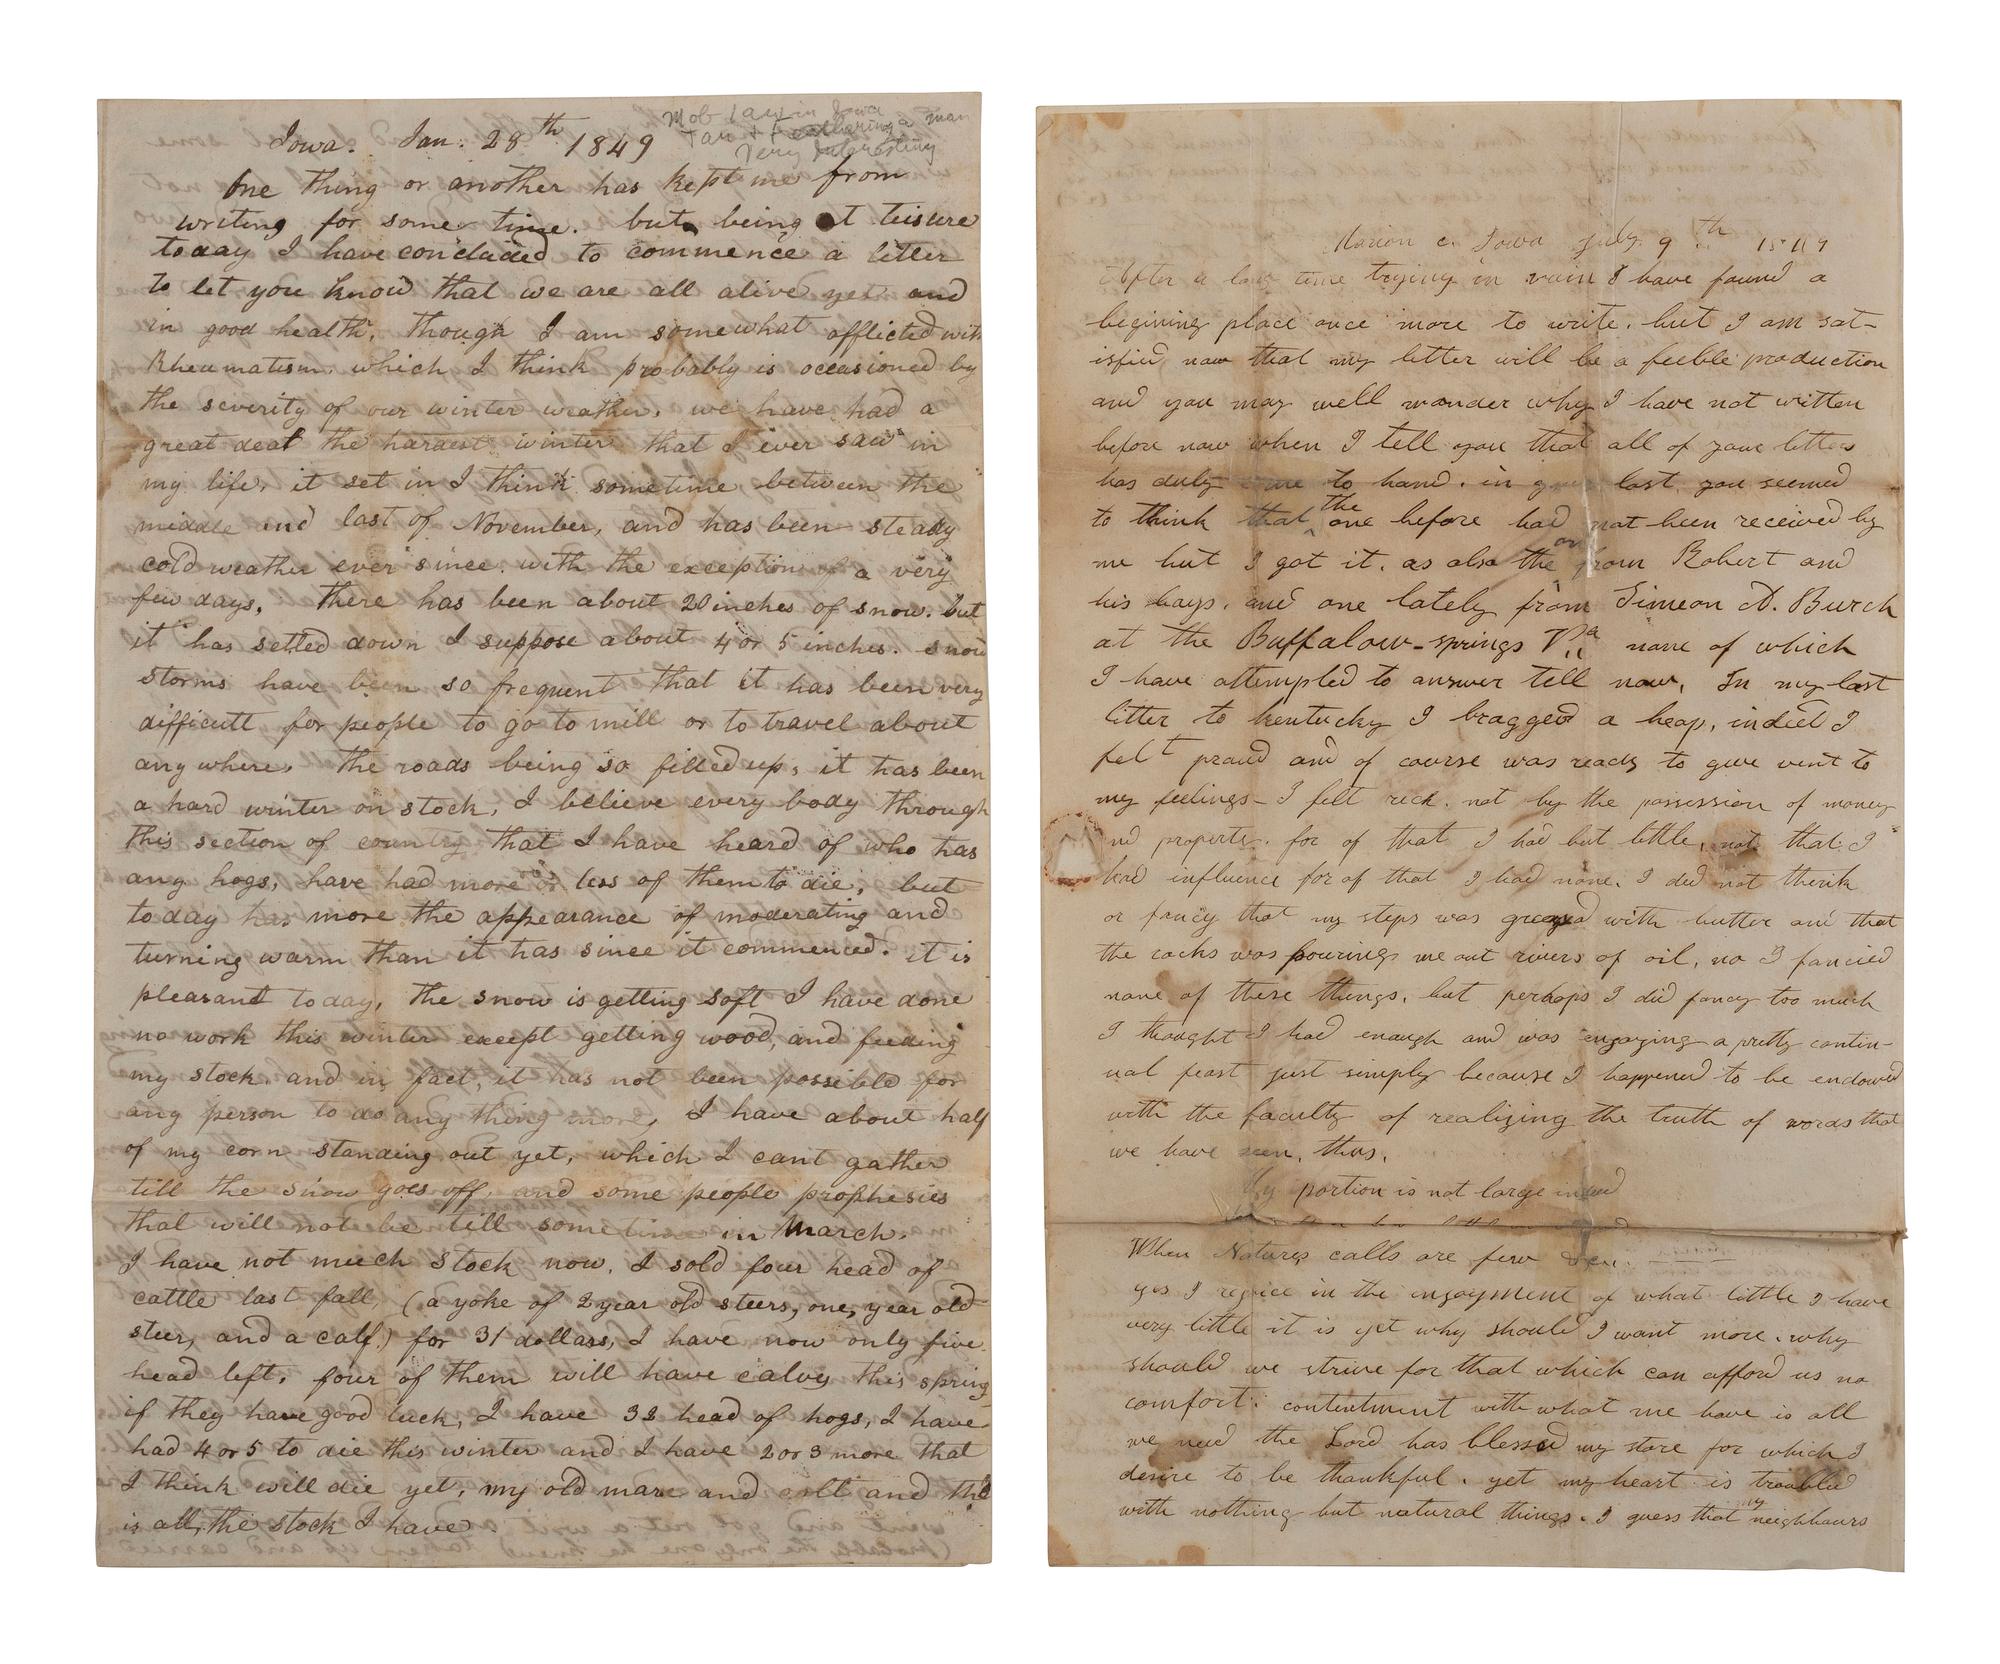 Mob law in Iowa
Tar & Feathering a man
Very Interesting
Iowa. Jan. 28th 1849
One thing or another has kept me from
writing for some time. but being at leisure
today I have concluded to commence a letter
to let you know that we are all alive yet and
in good health, though I am somewhat afflicted with
Rheumatism, which I think probably is occasioned by
the severity of our winter weather. we have had a
great deal the hardest winter that I ever saw in
my life, it set in I think sometime between the
middle and last of November, and has been steady
cold weather ever since. with the exception of a very
few days. There has been about 20 inches of snow. but
it has setled down I suppose about 4 or 5 inches. snow
storms have been so frequent that it has been very
difficult for people to go to mill or to travel about
any where. The roads being so filled up, it has been
a hard winter on stock, I believe every body through
this section of country that I have heard of who has
any hogs, have had more or less of them to die, but
today has more the appearance of moderating and
turning warm than it has since it commenced. it is
pleasant today, the snow is getting soft I have done
no work this winter except getting wood, and feeding
my stock, and in fact, it has not been possible for
any person to do any thing more, I have about half
of my corn standing out yet, which I cant gather
till the snow goes off, and some people prophesies
that will not be till sometime in March.
I have not much stock now. I sold four head of
cattle last fall, (a yoke of 2 year old steers, one, year old
steer, and a calf.) for 31 dollars, I have now only five
head left, four of them will have calvs this spring
if they have good luck, I have 32 head of hogs, I have
had 4 or 5 to die this winter and I have 2 or 3 more that
I think will die yet, my old mare and colt and this
is all, the stock I have
Marion c. Iowa July 9th 1849
After a long time trying in vain I have found a
begining place once more to write. but I am sat-
isfied now that my letter will be a feeble production
and you may well wonder why I have not written
before now when I tell you that all of your letters
has duly come to hand. in your last you seemed
to think that the one before had not been received by
me but I got it. as also the on from Robert and
his boys. and one lately from Simeon A. Burch
at the Buffalow-springs Va none of which
I have attempted to answer tell now, In my last
letter to kentucky I bragged a heap, indeed I
felt proud and of course was ready to give vent to
my feelings - I felt rich. not by the possession of money
nd property. for of that I had but little, not that I
had influence for of that I had none. I did not think
or fancy that my steps was greezed with butter and that
the rocks was pouring me out rivers of oil, no I fancied
none of these things, but perhaps I did fancy too much
I thought I had enough and was enjoying a pretty contin-
ual feast just simply because I happened to be endowed
with the faculty of realizing the truth of words that
we have seen, thus.
My portion is not large indeed
When Natures calls are few
yes I rejoice in the injoyment of what little I have
very little it is yet why should I want more. why
should we strive for that which can afford us no
comfort: contentment with what we have is all
we need the Lord has blessed my store for which I
desire to be thankful. yet my heart is troubled
with nothing but natural things. I guess that my neighbours